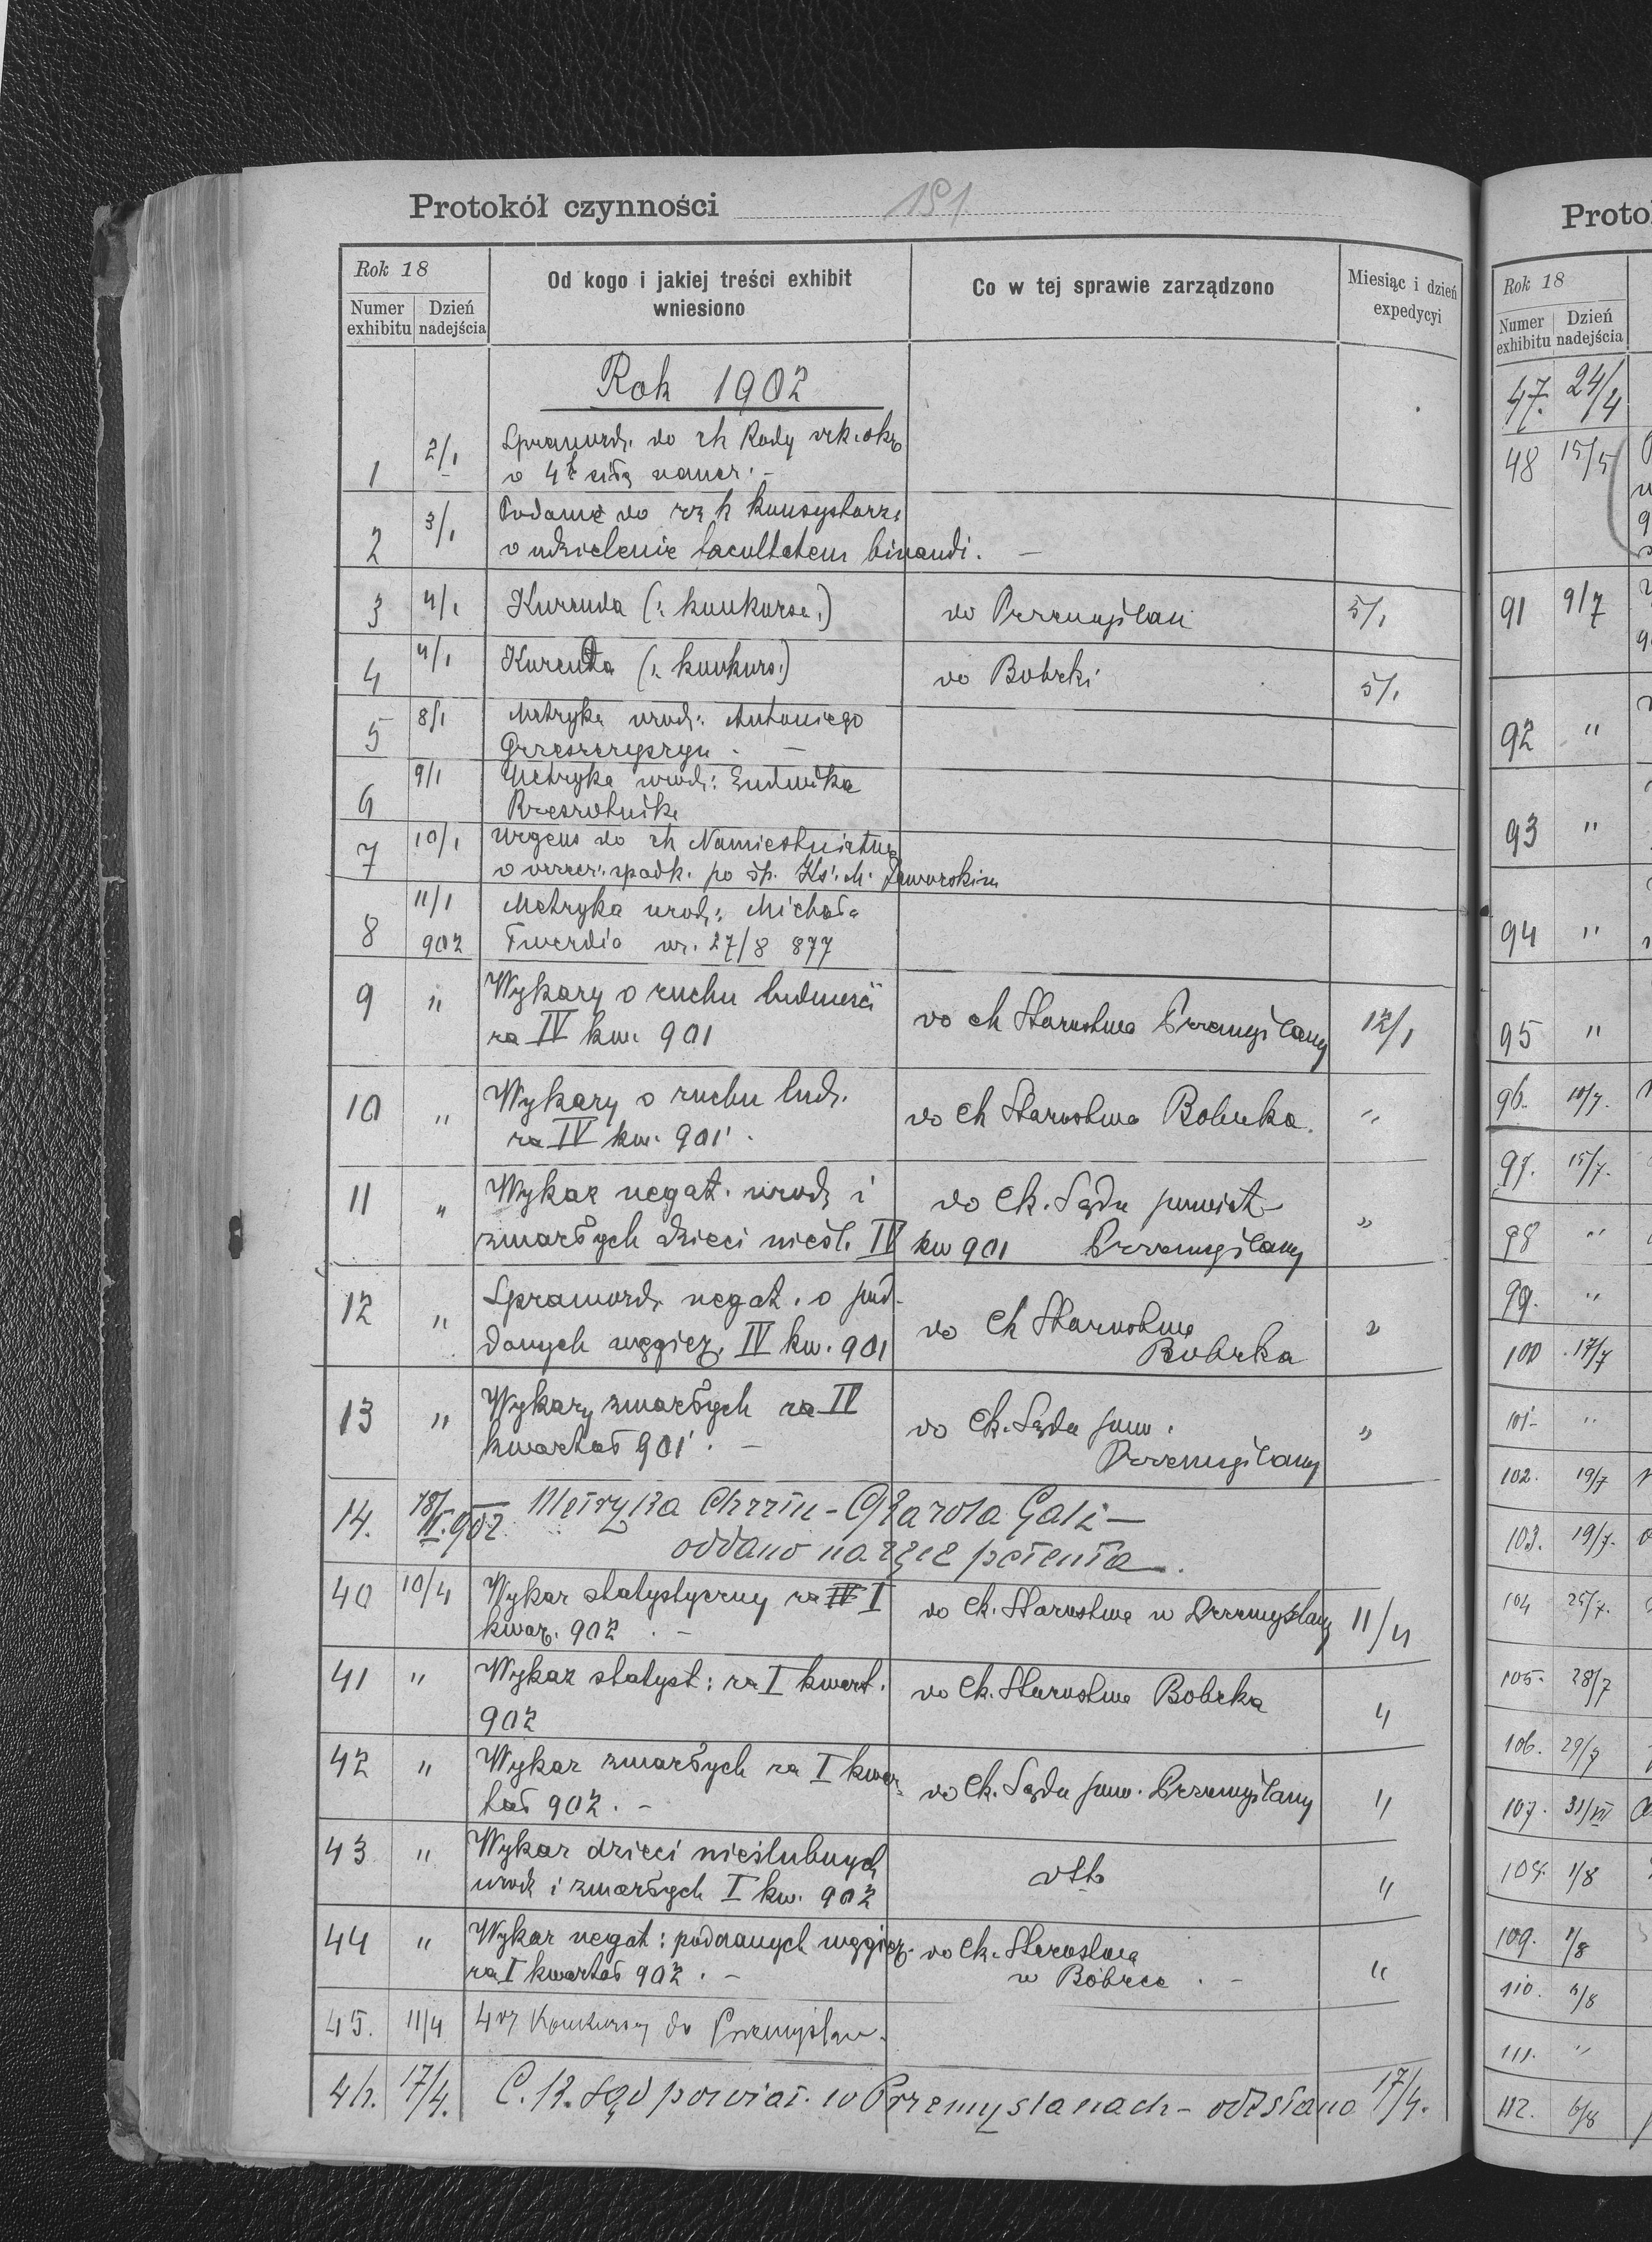 Protokół czynności 191
Rok 18
Numer exhibitu
Dzień nadejścia
Od kogo i jakiej treści exhibit wniesiono
Co w tej sprawie zarządzono
Miesiąc i dzień expedycyi
Rok 1902
1 2/1 Sprawozd. do ck Rady szk. okr.
o 4tą siłę naucz. –
2 3/1 Podanie do rz k konsystorza
o udzielenie facultatem binandi. –
3 4/1 Kurenda (: konkurs.) do Przemyślan 5/1
4 4/1 Kurenda (: konkurs.) do Bobrki 5/1
5 8/1 Metryka urodz: Antoniego
Grzeszczyszyn . –
6 9/1 Metryka urodz: Ludwika
Rzeszotnika
7 10/1 Urgens do ck Namiestnictwa
o spadk. po śp. Ks. M. Jaworskim
8 11/1 902 Metryka urodz: Michała
Twerdia ur. 27/8 877
9 " Wykazy o ruchu ludności
za IV kw. 901 do ck Starostwa Przemyślany 12/1
10 " Wykazy o ruchu ludn.
za IV kw. 901 . do ck Starostwa Bobrka. "
11 " Wykaz negat. urodz i do ck. Sądu powiat
zmarłych dzieci nieśl. IV kw 901 Przemyślany "
12 " Sprawozd. negat. o pod-
danych węgier. IV kw. 901 do ck Starostwa
Bobrka "
13 " Wykazy zmarłych za IV
kwartał 901 . – do ck. Sądu pow.
Przemyślany "
14. 18/II.902 Metryka Chrztu - Karola Gali –
oddano na ręce petenta .
40 10/4 Wykaz statystyczny za IV I do ck. Starostwa w Przemyślany 11/4
kwar. 902 . –
41 " Wykaz statyst: za I kwart. do ck. Starostwa Bobrka "
902
42 " Wykaz zmarłych za I kwar-
tał 902 . – do ck. Sądu pow. Przemyślany "
43 " Wykaz dzieci nieślubnych
urodz i zmarłych I kw. 902 dtto "
44 " Wykaz negat: poddanych węgier. do ck. Starostwa
za I kwartał 902 . – w Bobrce . – "
45. 11/4 Konkursy do Przemyślan.
46. 17/4. C. K. Sąd powiat. w Przemyślanach - odesłano 17/4.
Proto
Rok 18
Numer exhibitu
Dzień nadejścia
47. 24/4
48 15/5
91 9/7
92 "
93 "
94 "
95 "
96. 10/7.
97. 15/7.
98 "
99. "
100 17/7
101 "
102. 19/7
103. 19/7.
104 25/7.
105. 28/7
106. 29/7
107. 31/VII
108. 1/8
109.
110.
111. "
112. 6/8